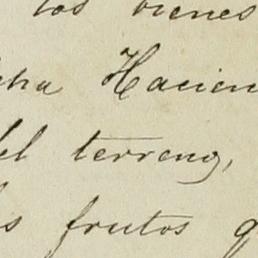 los bienes
cha Hacien
del terreno,
os frutos q